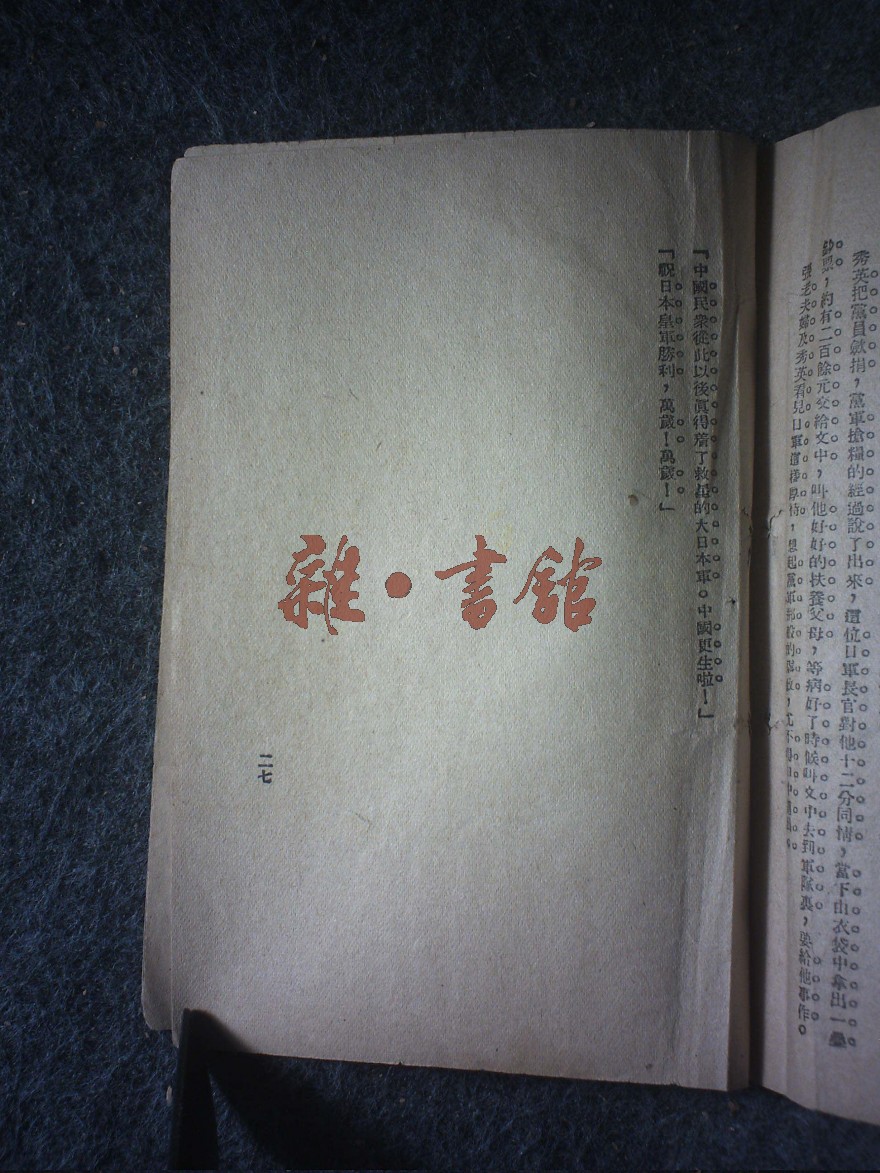 秀英把黨員斂捐，黨軍搶糧的經過說了出來，這位日軍長官對他十二分同情，當下由衣袋中拿出一疊
鈔票，約有二百餘元交給文中，叫他好好的扶養父母，等病好了時候叫文中去到軍隊裏，要給他事作。
張老夫婦及秀英看見日軍這樣厚待，想起黨軍那般的
『中國民衆從此以後眞得着了救星的大日本軍。中國更生啦！』
『祝日本皇軍勝利，萬歲！萬歲！』
二七
雜•書館